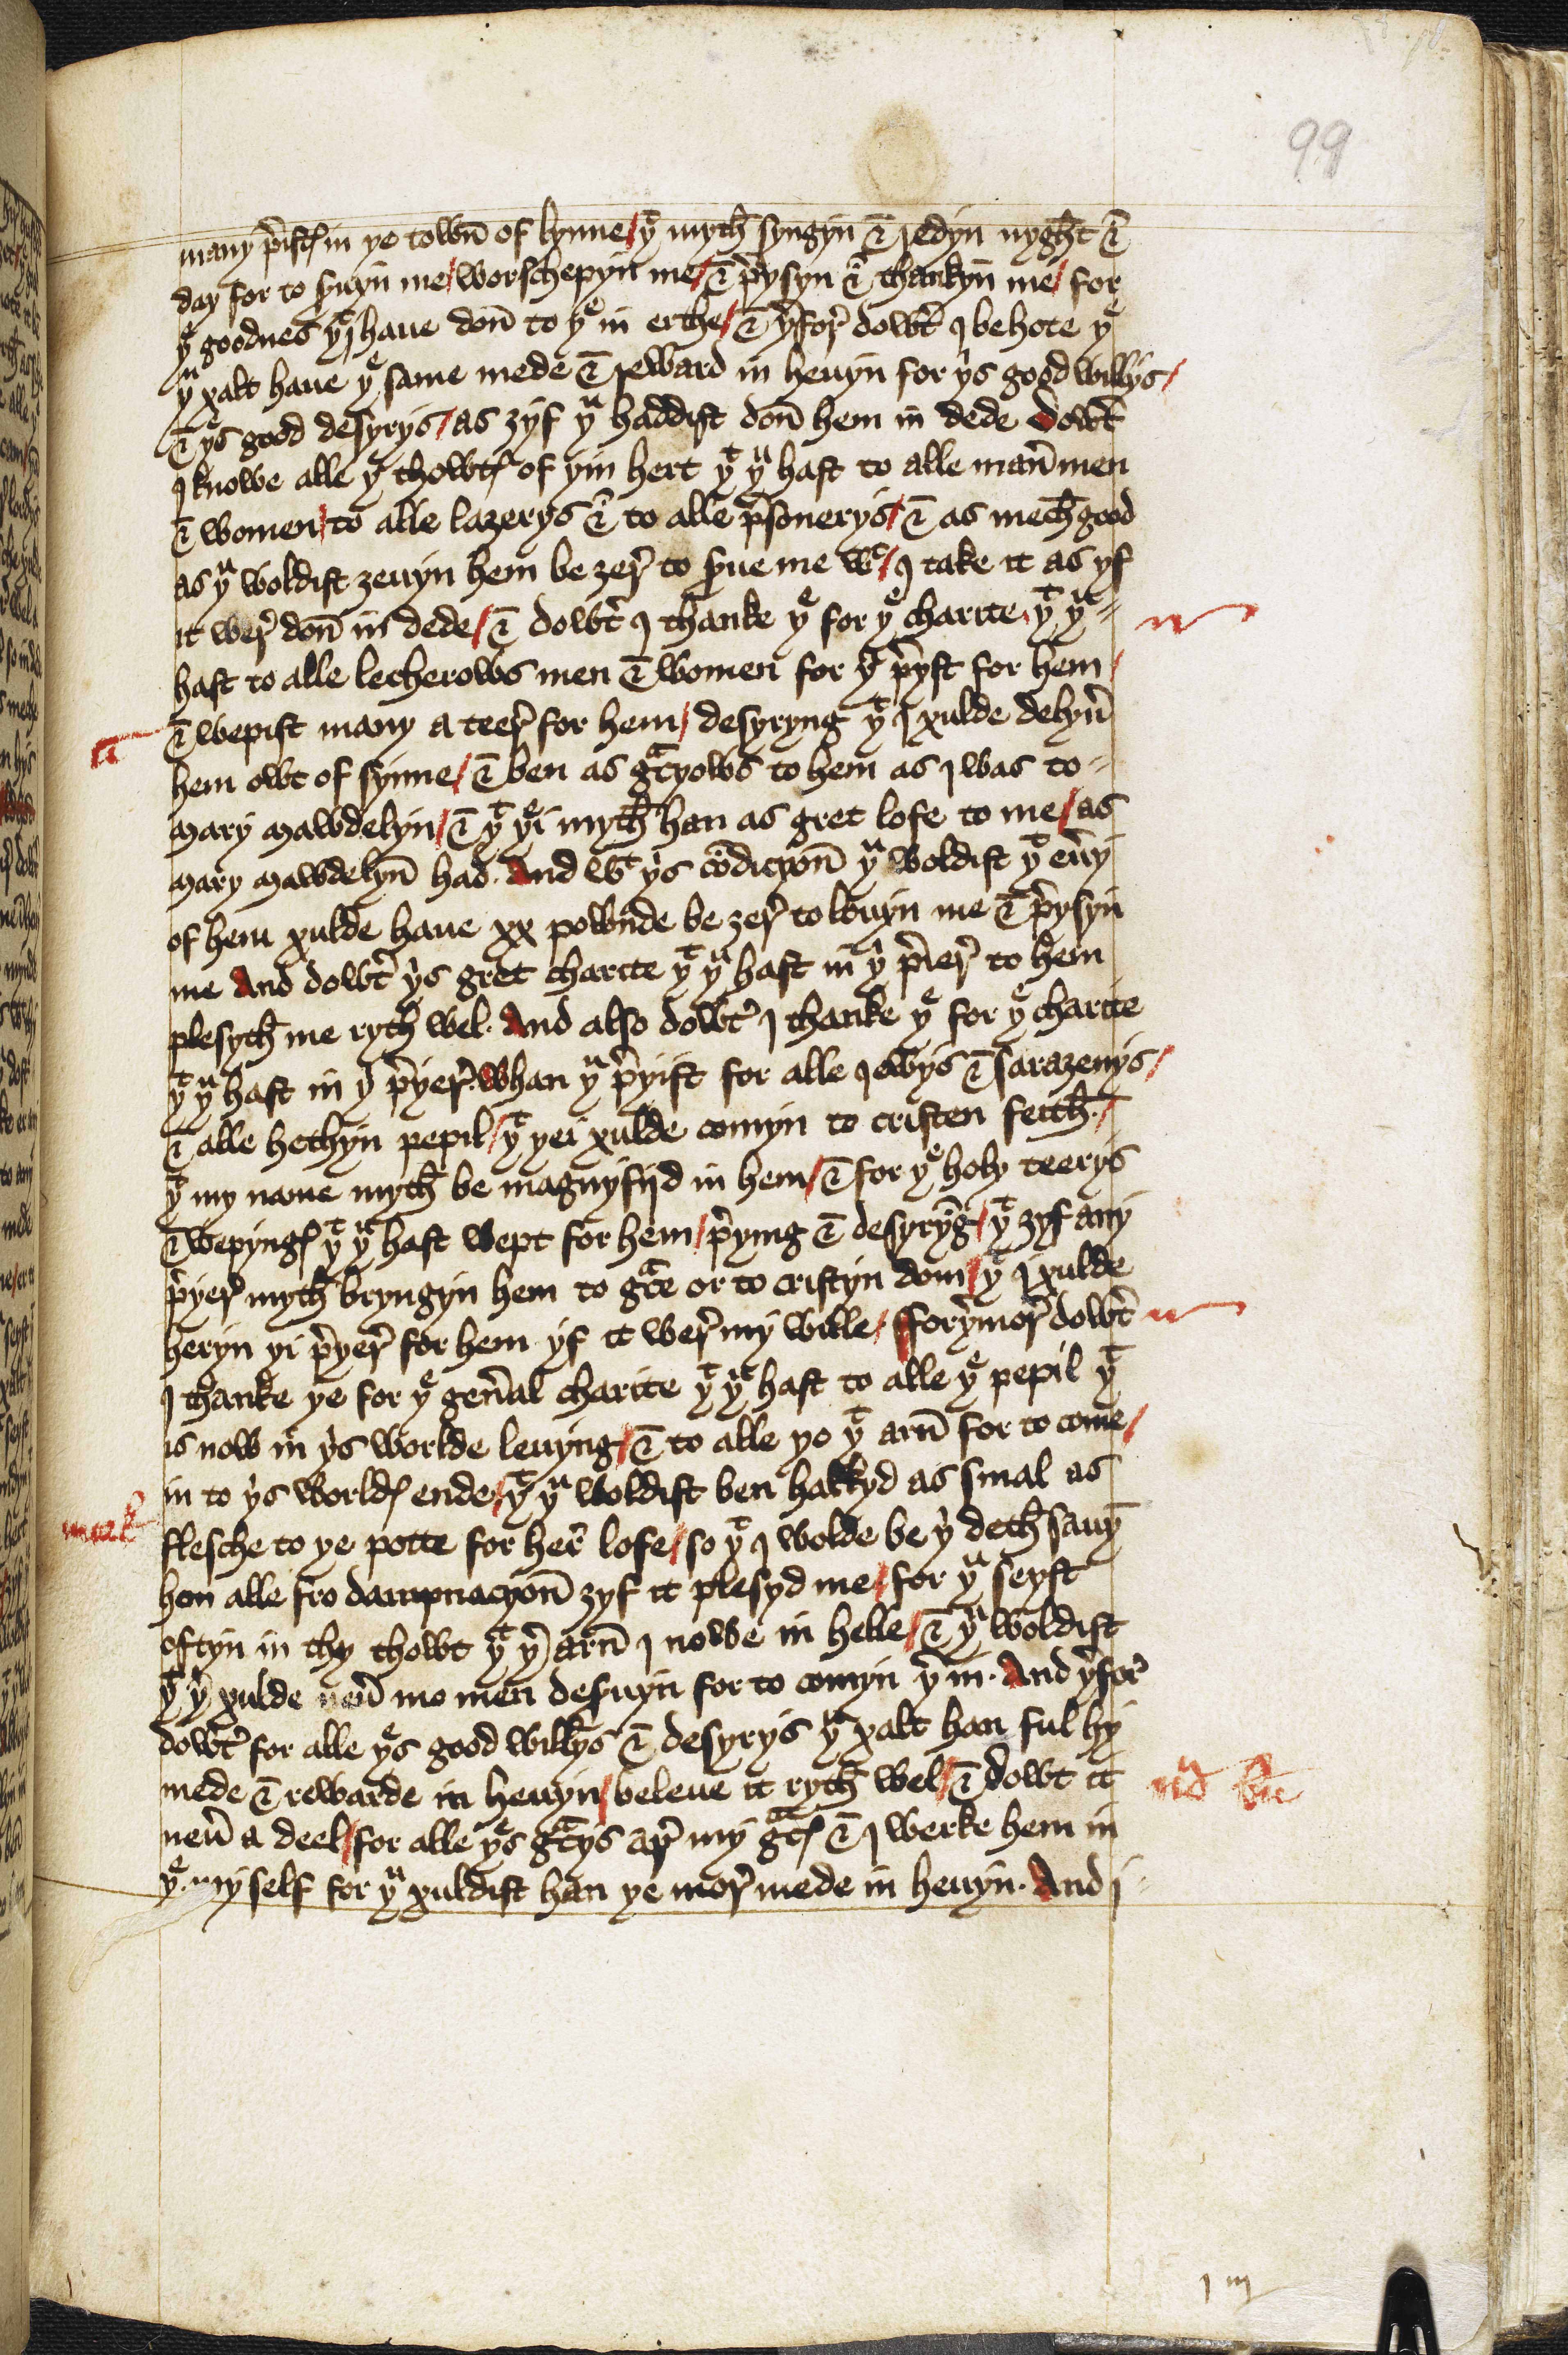 99
many p̄istꝭ in ye towñ of lynne / yͭ myth̄ syngyn & redyn nyght̄ &
day for to s̄uyn me / worschepyn me / & p̄ysyn & thankyn me / for
yͤ goodnes yͭ I haue doñ to yͤ in erthe / & yr̄for̄ dowt̄ I behote yͤ
yᵘ xalt haue yͤ same mede & reward in heuyn for yͥs good willys /
& yͤs good desyrys / as ȝyf yᵘ haddist doñ hem in dede Dowt̄
I knowe alle yͤ thowtꝭ of yin hert yͭ yᵘ hast to alle man̄ men
& women / to alle laȝerys & to alle p̄sonerys / & as mech̄ good
as yᵘ woldist ȝeuyn hem be ȝer̄ to s̄ue me wͭ / I take it as yf
it wer̄ doñ in dede / & dowt̄ I thanke yͤ for yͤ charite yͭ yᵘ =
hast to alle lecherows men & women for yᵘ p̄yst for hem /
& wepist many a teer̄ for hem / desyryng yͭ I xulde delyu̅
hem owt of synne / & ben as gᵃcyows to hem as I was to =
Mary Mawdelyn / & yͭ yͤi myth̄ han as gret lofe to me / as
Mary Mawdelyñ had . And wͭ yͥs cōdicyoñ yᵘ woldist yͭ eu̅y
of hem xulde haue xx pownde be ȝer̄ to louyn me & p̄ysyn
me And dowt̄ yͥs gret charite yͭ yᵘ hast in yͥ p̄ier̄ to hem
plesyth̄ me ryth̄ wel . And also dowt̄ I thanke yͤ for yͤ charite
yͭ yᵘ hast in yͥ p̄yer̄ . whan yᵘ p̄yist for alle Iewys & saraȝenys /
& alle hethyn pepil / yͭ yei xulde comyn to cristen feith̄ . /
yͭ my name myth̄ be magnyfijd in hem / & for yͤ holy teerys
& wepyngꝭ yͭ yᵘ hast wept for hem / p̄ying & desyryg̅ / yͭ ȝyf any
p̄yer̄ myth̄ bryngyn hem to gᵃce or to cristyndom / yͭ I xulde
heryn yi p̄yer̄ for hem yf it wer̄ my wille / fforyr̄mor̄ dowt̄
I thanke ye for yͤ gen̄al charite yͭ yᵘ hast to alle yͤ pepil yͭ
is now in yͥs worlde leuyng / & to alle yo yͭ arñ for to come /
in to yͥs worldꝭ ende / yͭ yᵘ woldist ben hakkyd as smal as
flesche to ye potte for her̄ lofe / so yͭ I wolde be yͥ deth̄ sauy̅
hem alle fro dampnacyoñ ȝyf it plesyd me / for yᵘ seyst
oftyn in thy thowt yͭ yr̄ arñ I nowe in helle / & yᵘ woldist
yͭ yr̄ xulde neu̅ mo men deseruyn for to comyn yr̄ in . And yr̄for̄
dowt̄ for alle yͤs good willys & desyrys yᵘ xalt han ful hy
mede & rewarde in heuyn / beleue it ryth̄ wel / & dowt it
neu̅ a deel / for alle yͤs gᵃcys ar̄ my gᵃcꝭ & I werke hem in
yͤ my self for yᵘ xuldist han ye mor̄ mede in heuyn . And I =